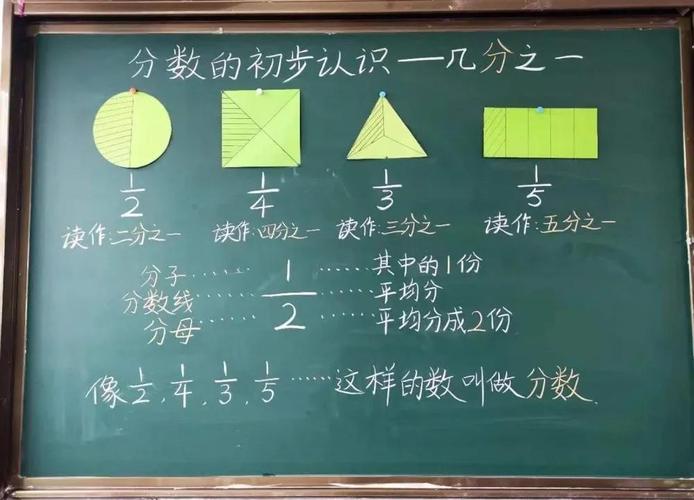 分数的初步认识——几分之一
1/2 1/4 1/3 1/5
读作:二分之一 读作:四分之一 读作:三分之一 读作:五分之一
分子…… 1 ……其中的1份
分数线…… — ……平均分
分母…… 2 ……平均分成2份
像1/2,1/4,1/3,1/5……这样的数叫做分数.